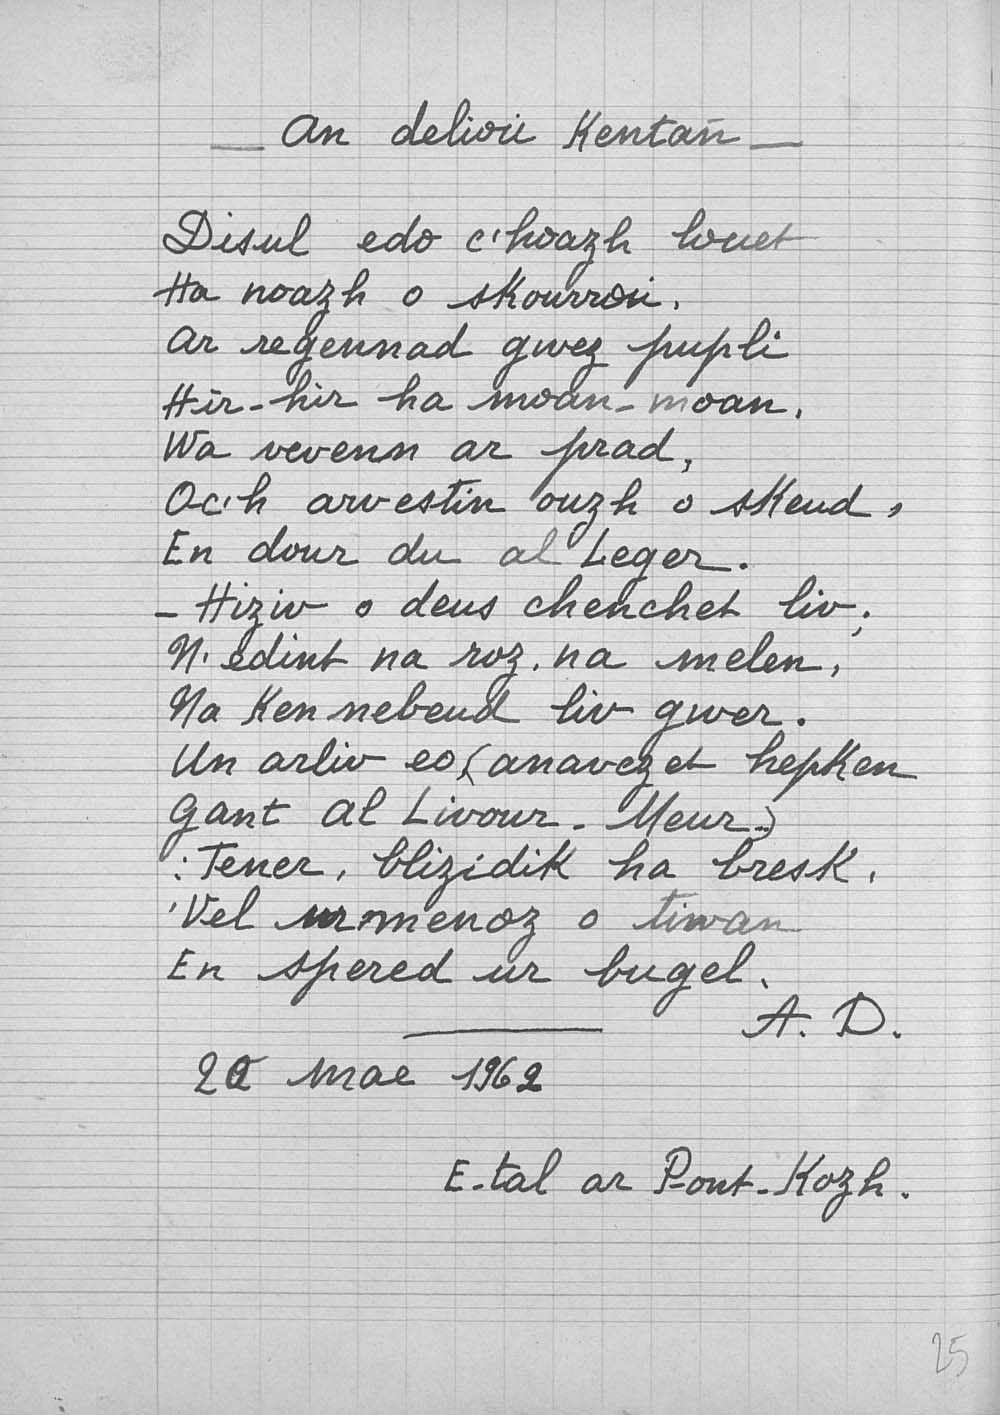 — An delioù Kentañ —
Disul edo c'hoazh louet
Ha noazh o skourroù,
Ar regennad gwez pupli
Hir-hir ha moan-moan,
Wa vevenn ar prad,
Oc'h arvestin ouzh o skeud,
En dour du al Leger.
- Hiziv o deus chenchet liv;
N'edint na roz, na melen,
Na Ken nebeud liv gwer.
Un arliv eo, (anavezet hepken
Gant al Livour-Meur.)
: Tener, blizidik ha bresk,
'Vel ur menoz o tiwan
En spered ur bugel.
A. D.
20 Mae 1962
E-tal ar Pont-Kozh.
25